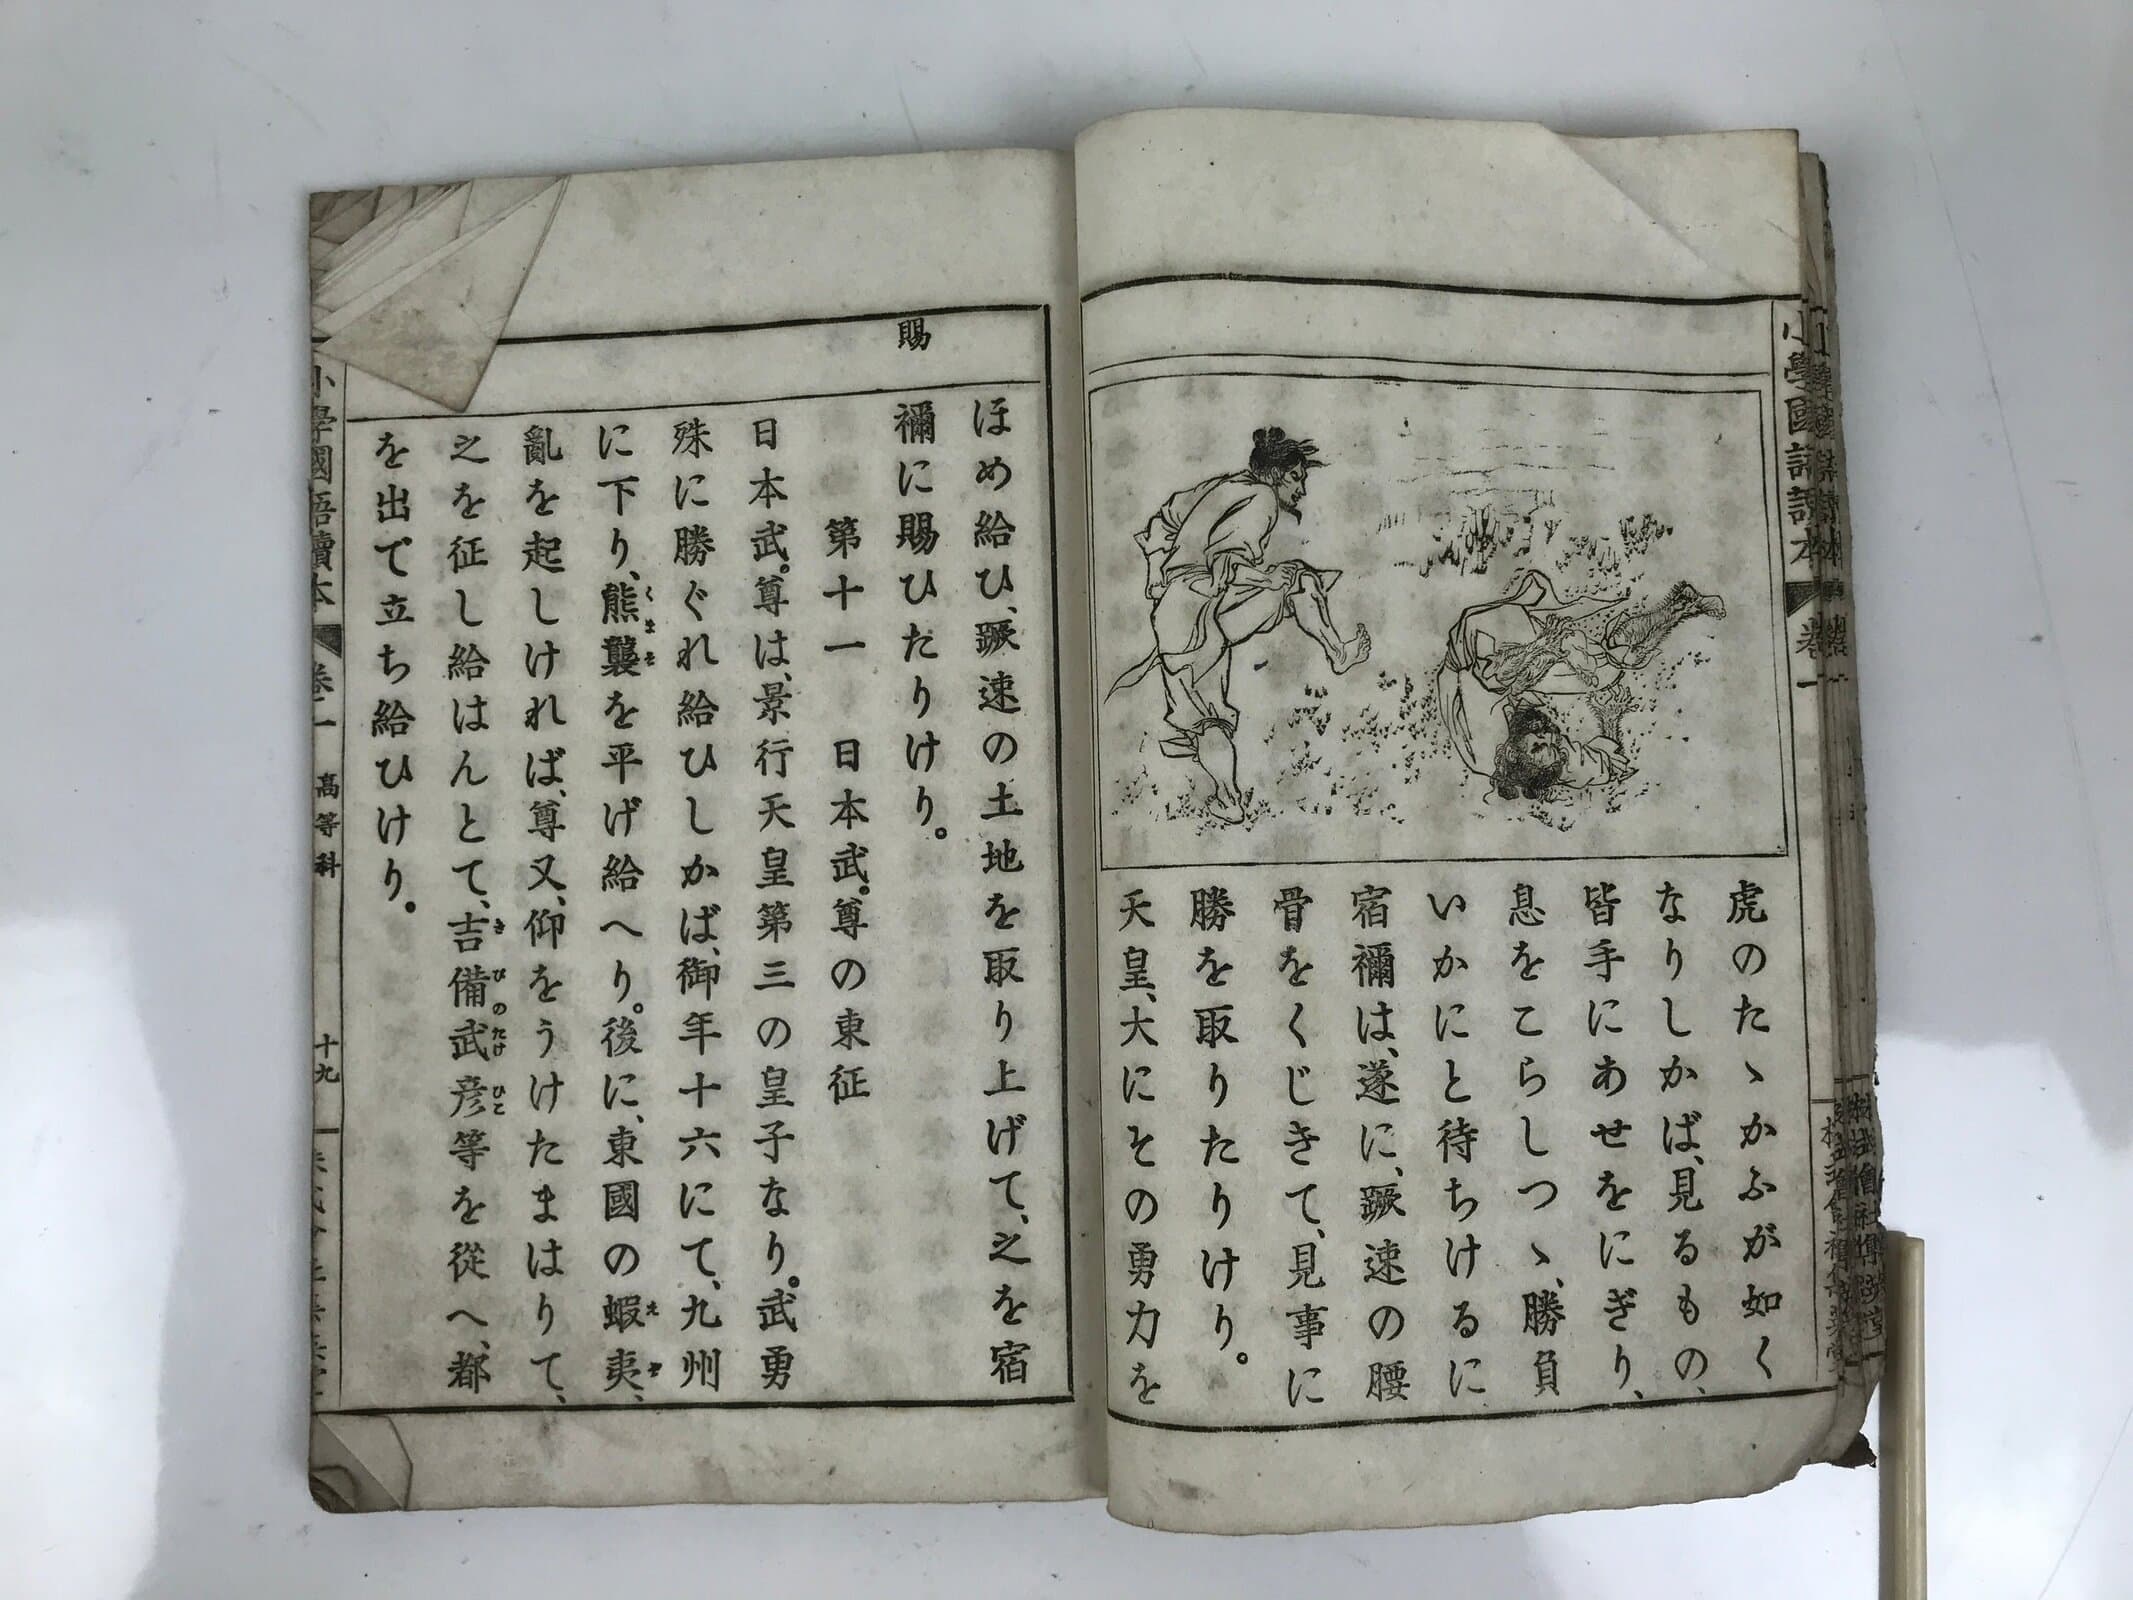 小學國語讀本 卷一
虎のたゝかふが如く
なりしかば、見るもの、
皆手にあせをにぎり、
息をこらしつゝ、勝負
いかにと待ちけるに
宿禰は、遂に、蹶速の腰
骨をくじきて、見事に
勝を取りたりけり。
天皇、大にその勇力を
賜
ほめ給ひ、蹶速の土地を取り上げて、之を宿
禰に賜ひたりけり。
第十一 日本武。尊の東征
日本武。尊は、景行天皇第三の皇子なり。武勇
殊に勝ぐれ給ひしかば、御年十六にて、九州
に下り、熊襲を平げ給へり。後に、東國の蝦夷、
くまそ
えぞ
亂を起しければ、尊又、仰をうけたまはりて、
之を征し給はんとて、吉備武彦等を從へ、都
きびのたけひこ
を出で立ち給ひけり。
小學國語讀本 高等科 十九